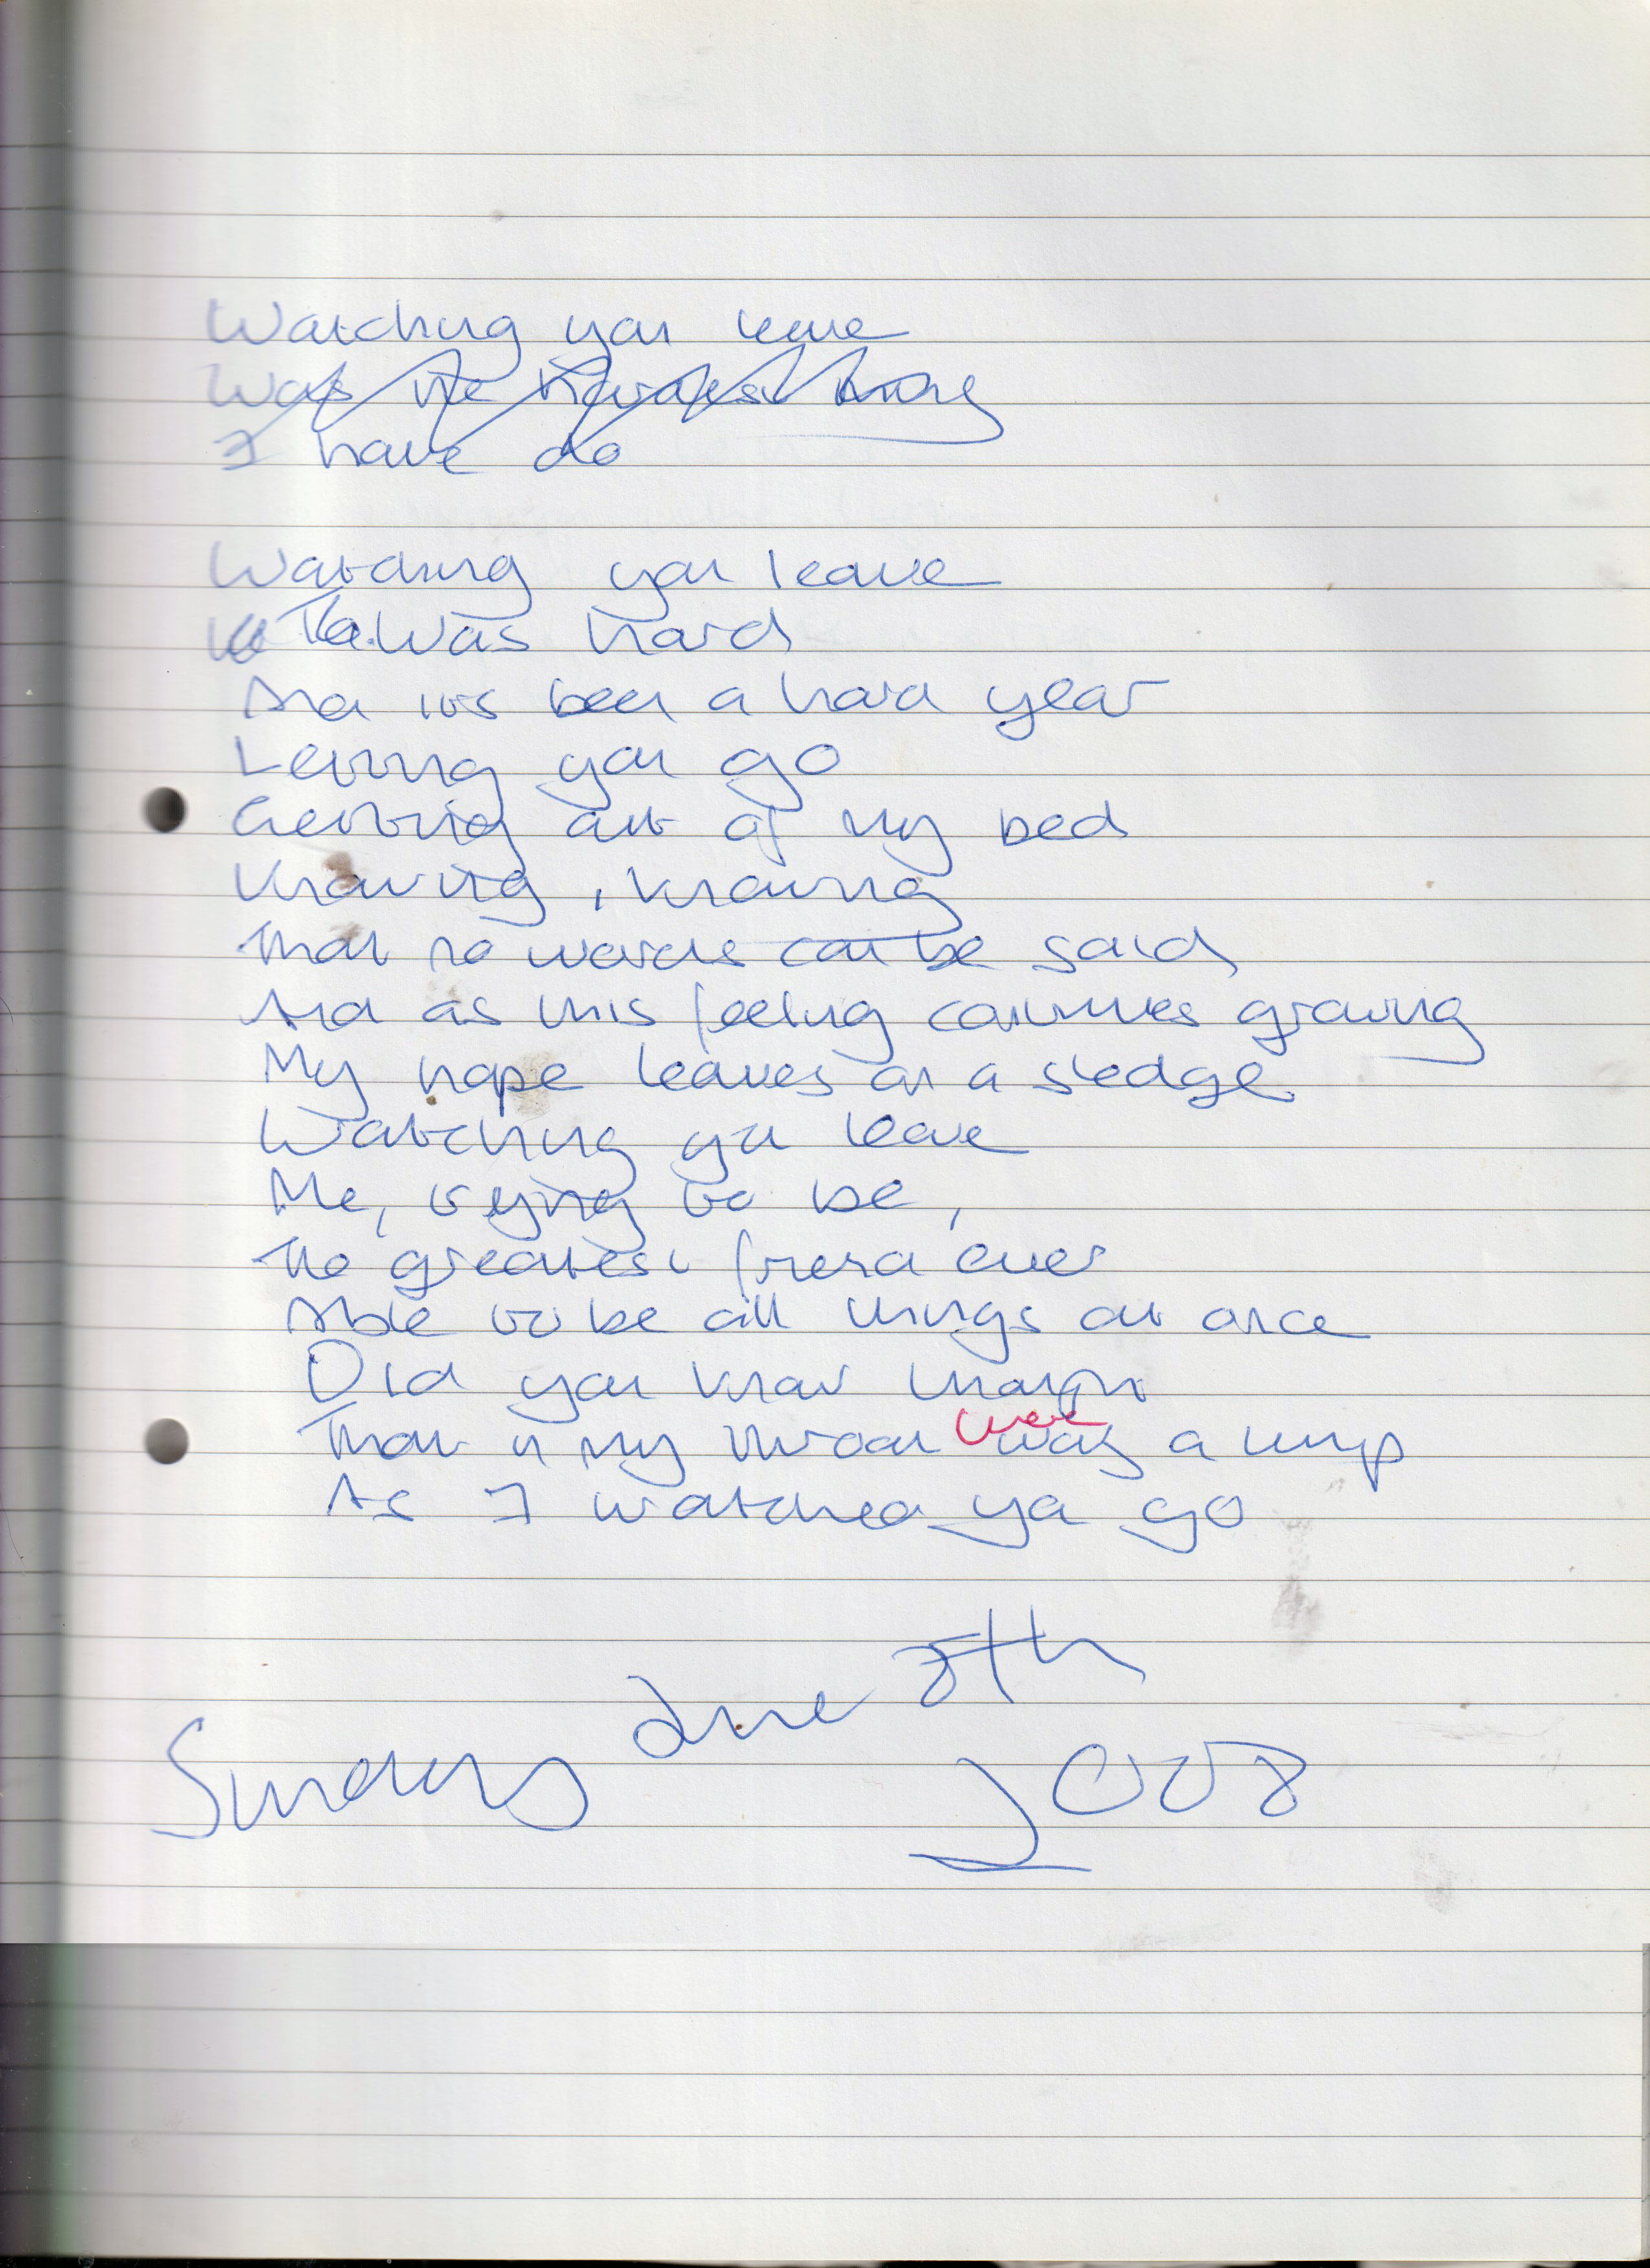 Watching you leave
Was the hardest thing
I have do
Watching you leave
Was hard
And its been a hard year
Letting you go
Getting out of my bed
Knowing, knowing
That no words can be said
And as this feeling continues growing
My hope leaves on a sledge
Watching you leave
Me, trying to be,
The greatest friend ever
Able to be all things at once
Did you know
That in my throat was a lump
were
As I watched ya go
Sunday June 8th
2008